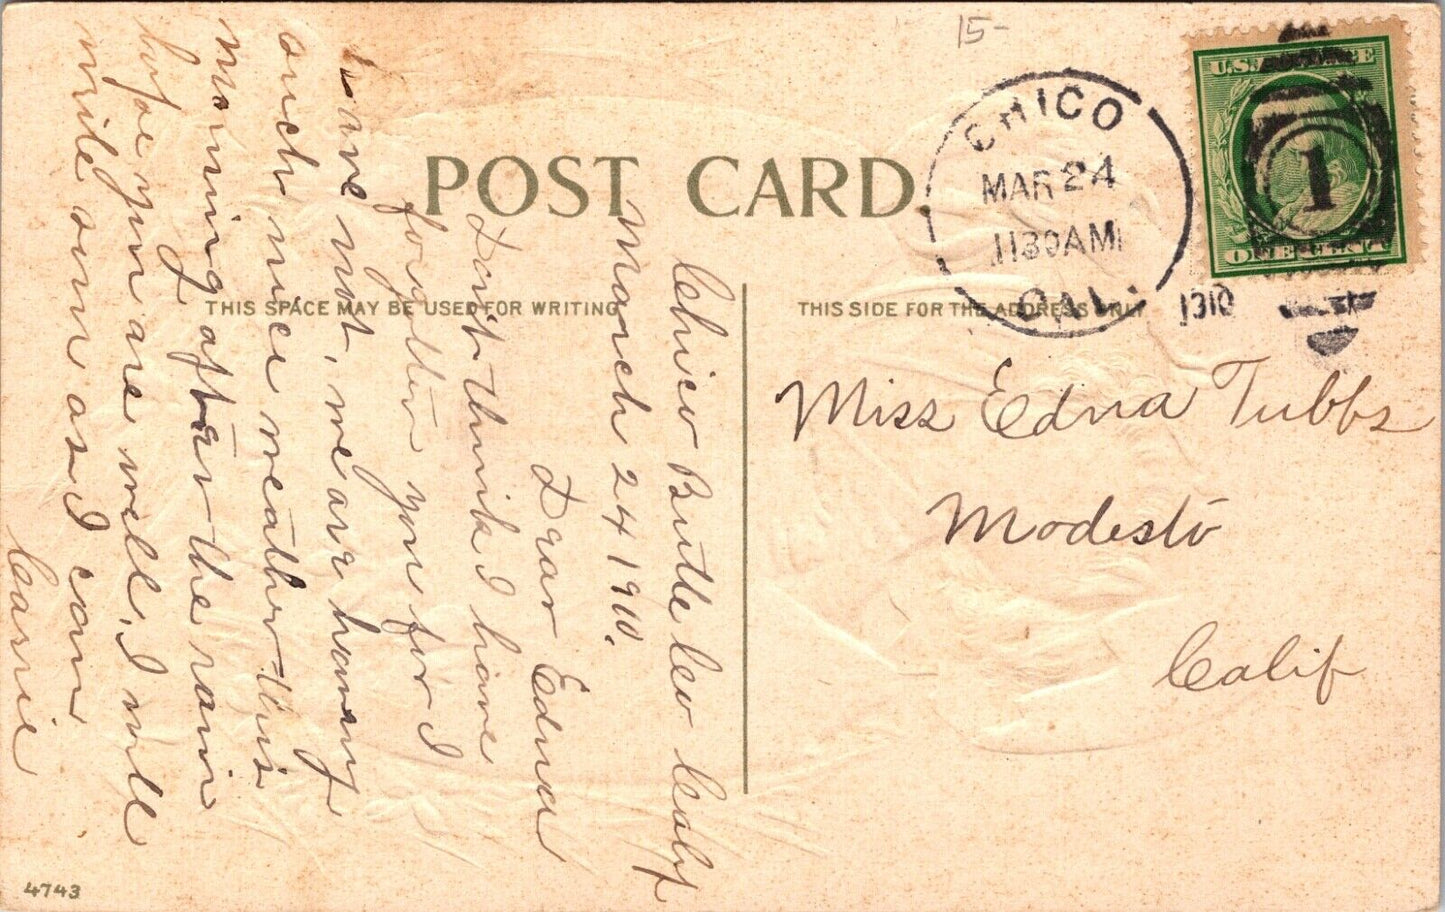 15-
U.S. POSTAGE
ONE CENT
1
CHICO
MAR 24
1130AM
CAL.
1910
POST CARD
THIS SPACE MAY BE USED FOR WRITING
THIS SIDE FOR THE ADDRESS ONLY
Chico Butte Co Calif
March 24 1910.
Dear Edna
Don't think I have
forgotten you for I
have not, we are having
such nice weather this
morning after the rain
hope you are well, I will
write soon as I can
Cassie
Miss Edna Tubbs
Modesto
Calif
4743